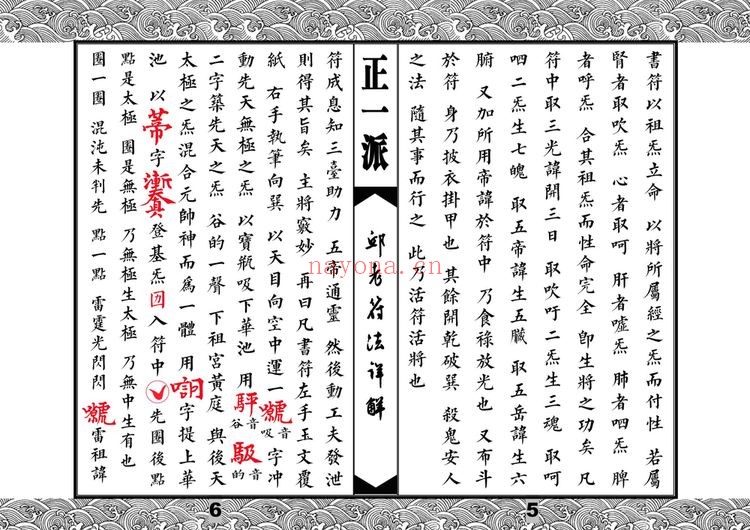 書符以祖炁立命 以將所屬經之炁而付性 若屬
腎者取吹炁 心者取呵 肝者噓炁 肺者呬炁 脾
者呼炁 合其祖炁而性命完全 卽生將之功矣 凡
符中取三光諱開三日 取吹吁二炁生三魂 取呵
呬二炁生七魄 取五帝諱生五臟 取五岳諱生六
腑 又加所用帝諱於符中 乃食祿放光也 又布斗
於符 身乃披衣掛甲也 其餘開乾破巽 殺鬼安人
之法 隨其事而行之 此乃活符活將也
5
正一派
邱老符法詳解
符成息知三臺助力 五帝通靈 然後動工夫發泄
則得其旨矣 主將竅妙 再曰凡書符左手玉文覆
紙 右手執筆向巽 以天目向空中運一 音吸 字冲
動先天無極之炁 以寶瓶吸下華池 用 音谷 音的
二字築先天之炁 谷的一聲 下祖宮黃庭 與後天
太極之炁混合元帥神而爲一體 用 字提上華
池 以 字 登基炁 入符中 先圈後點
點是太極 圈是無極 乃無極生太極 乃無中生有也
圈一圈 混沌未判先 點一點 雷霆光閃閃 雷祖諱
6
nayona.cn